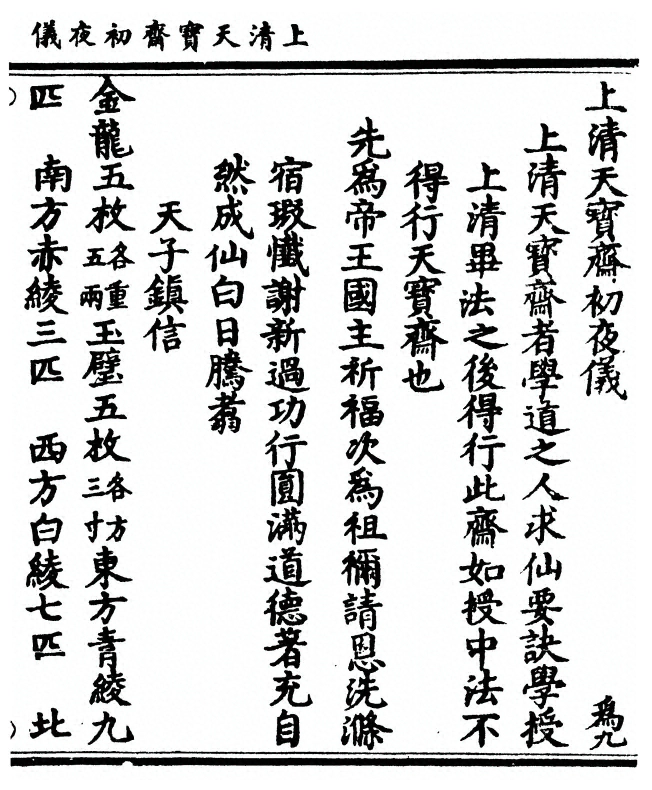 上清天寶齋初夜儀
上清天寶齋初夜儀 爲九
上清天寶齋者學道之人求仙要訣學授
上清畢法之後得行此齋如授中法不
得行天寶齋也
先爲帝王國主祈福次爲祖禰請恩洗滌
宿瑕懺謝新過功行圓滿道德著充自
然成仙白日騰翥
天子鎮信
金龍五枚各重五兩玉璧五枚各方三寸東方青綾九
匹 南方赤綾三匹 西方白綾七匹 北